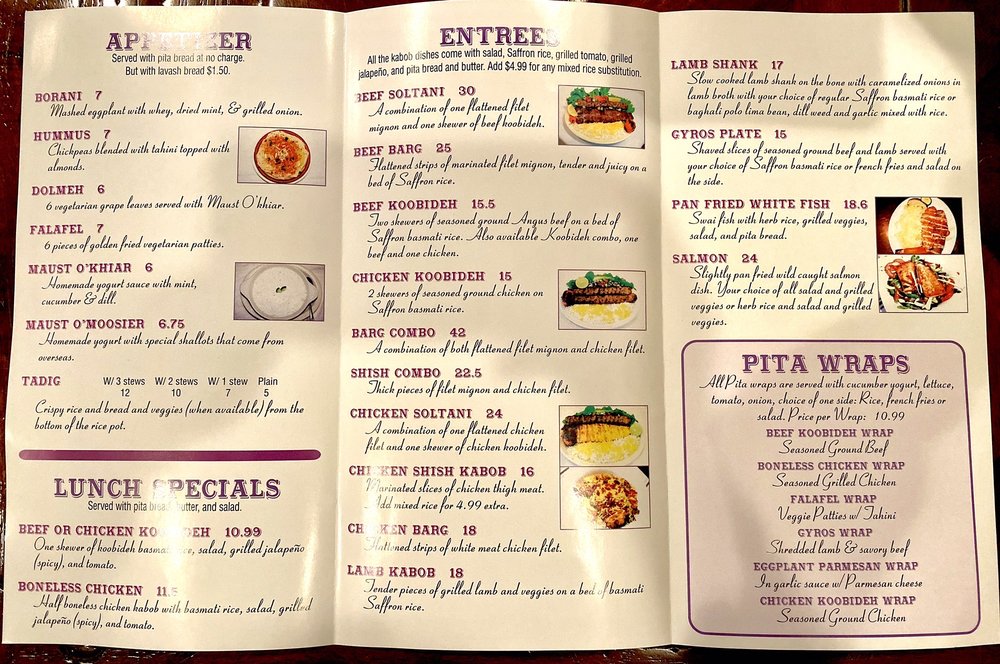 APPETIZER
Served with pita bread at no charge.
But with lavash bread $1.50.
BORANI 7
Mashed eggplant with whey, dried mint, & grilled onion.
HUMMUS 7
Chickpeas blended with tahini topped with
almonds.
DOLMEH 6
6 vegetarian grape leaves served with Maust O'khiar.
FALAFEL 7
6 pieces of golden fried vegetarian patties.
MAUST O'KHIAR 6
Homemade yogurt sauce with mint,
cucumber & dill.
MAUST O'MOOSIER 6.75
Homemade yogurt with special shallots that come from
overseas.
TADIG W/ 3 stews W/ 2 stews W/ 1 stew Plain
12 10 7 5
Crispy rice and bread and veggies (when available) from the
bottom of the rice pot.
LUNCH SPECIALS
Served with pita bread, butter, and salad.
BEEF OR CHICKEN KOOBIDEH 10.99
One skewer of koobideh basmati rice, salad, grilled jalapeño
(spicy), and tomato.
BONELESS CHICKEN 11.5
Half boneless chicken kabob with basmati rice, salad, grilled
jalapeño (spicy), and tomato.
ENTREES
All the kabob dishes come with salad, Saffron rice, grilled tomato, grilled
jalapeño, and pita bread and butter. Add $4.99 for any mixed rice substitution.
BEEF SOLTANI 30
A combination of one flattened filet
mignon and one skewer of beef koobideh.
BEEF BARG 25
Flattened strips of marinated filet mignon, tender and juicy on a
bed of Saffron rice.
BEEF KOOBIDEH 15.5
Two skewers of seasoned ground Angus beef on a bed of
Saffron basmati rice. Also available Koobideh combo, one
beef and one chicken.
CHICKEN KOOBIDEH 15
2 skewers of seasoned ground chicken on
Saffron basmati rice.
BARG COMBO 42
A combination of both flattened filet mignon and chicken filet.
SHISH COMBO 22.5
Thick pieces of filet mignon and chicken filet.
CHICKEN SOLTANI 24
A combination of one flattened chicken
filet and one skewer of chicken koobideh.
CHICKEN SHISH KABOB 16
Marinated slices of chicken thigh meat.
Add mixed rice for 4.99 extra.
CHICKEN BARG 18
Flattened strips of white meat chicken filet.
LAMB KABOB 18
Tender pieces of grilled lamb and veggies on a bed of basmati
Saffron rice.
LAMB SHANK 17
Slow cooked lamb shank on the bone with caramelized onions in
lamb broth with your choice of regular Saffron basmati rice or
baghali polo lima bean, dill weed and garlic mixed with rice.
GYROS PLATE 15
Shaved slices of seasoned ground beef and lamb served with
your choice of Saffron basmati rice or french fries and salad on
the side.
PAN FRIED WHITE FISH 18.6
Swai fish with herb rice, grilled veggies,
salad, and pita bread.
SALMON 24
Slightly pan fried wild caught salmon
dish. Your choice of all salad and grilled
veggies or herb rice and salad and grilled
veggies.
PITA WRAPS
All Pita wraps are served with cucumber yogurt, lettuce,
tomato, onion, choice of one side: Rice, french fries or
salad. Price per Wrap: 10.99
BEEF KOOBIDEH WRAP
Seasoned Ground Beef
BONELESS CHICKEN WRAP
Seasoned Grilled Chicken
FALAFEL WRAP
Veggie Patties w/ Tahini
GYROS WRAP
Shredded lamb & savory beef
EGGPLANT PARMESAN WRAP
In garlic sauce w/ Parmesan cheese
CHICKEN KOOBIDEH WRAP
Seasoned Ground Chicken